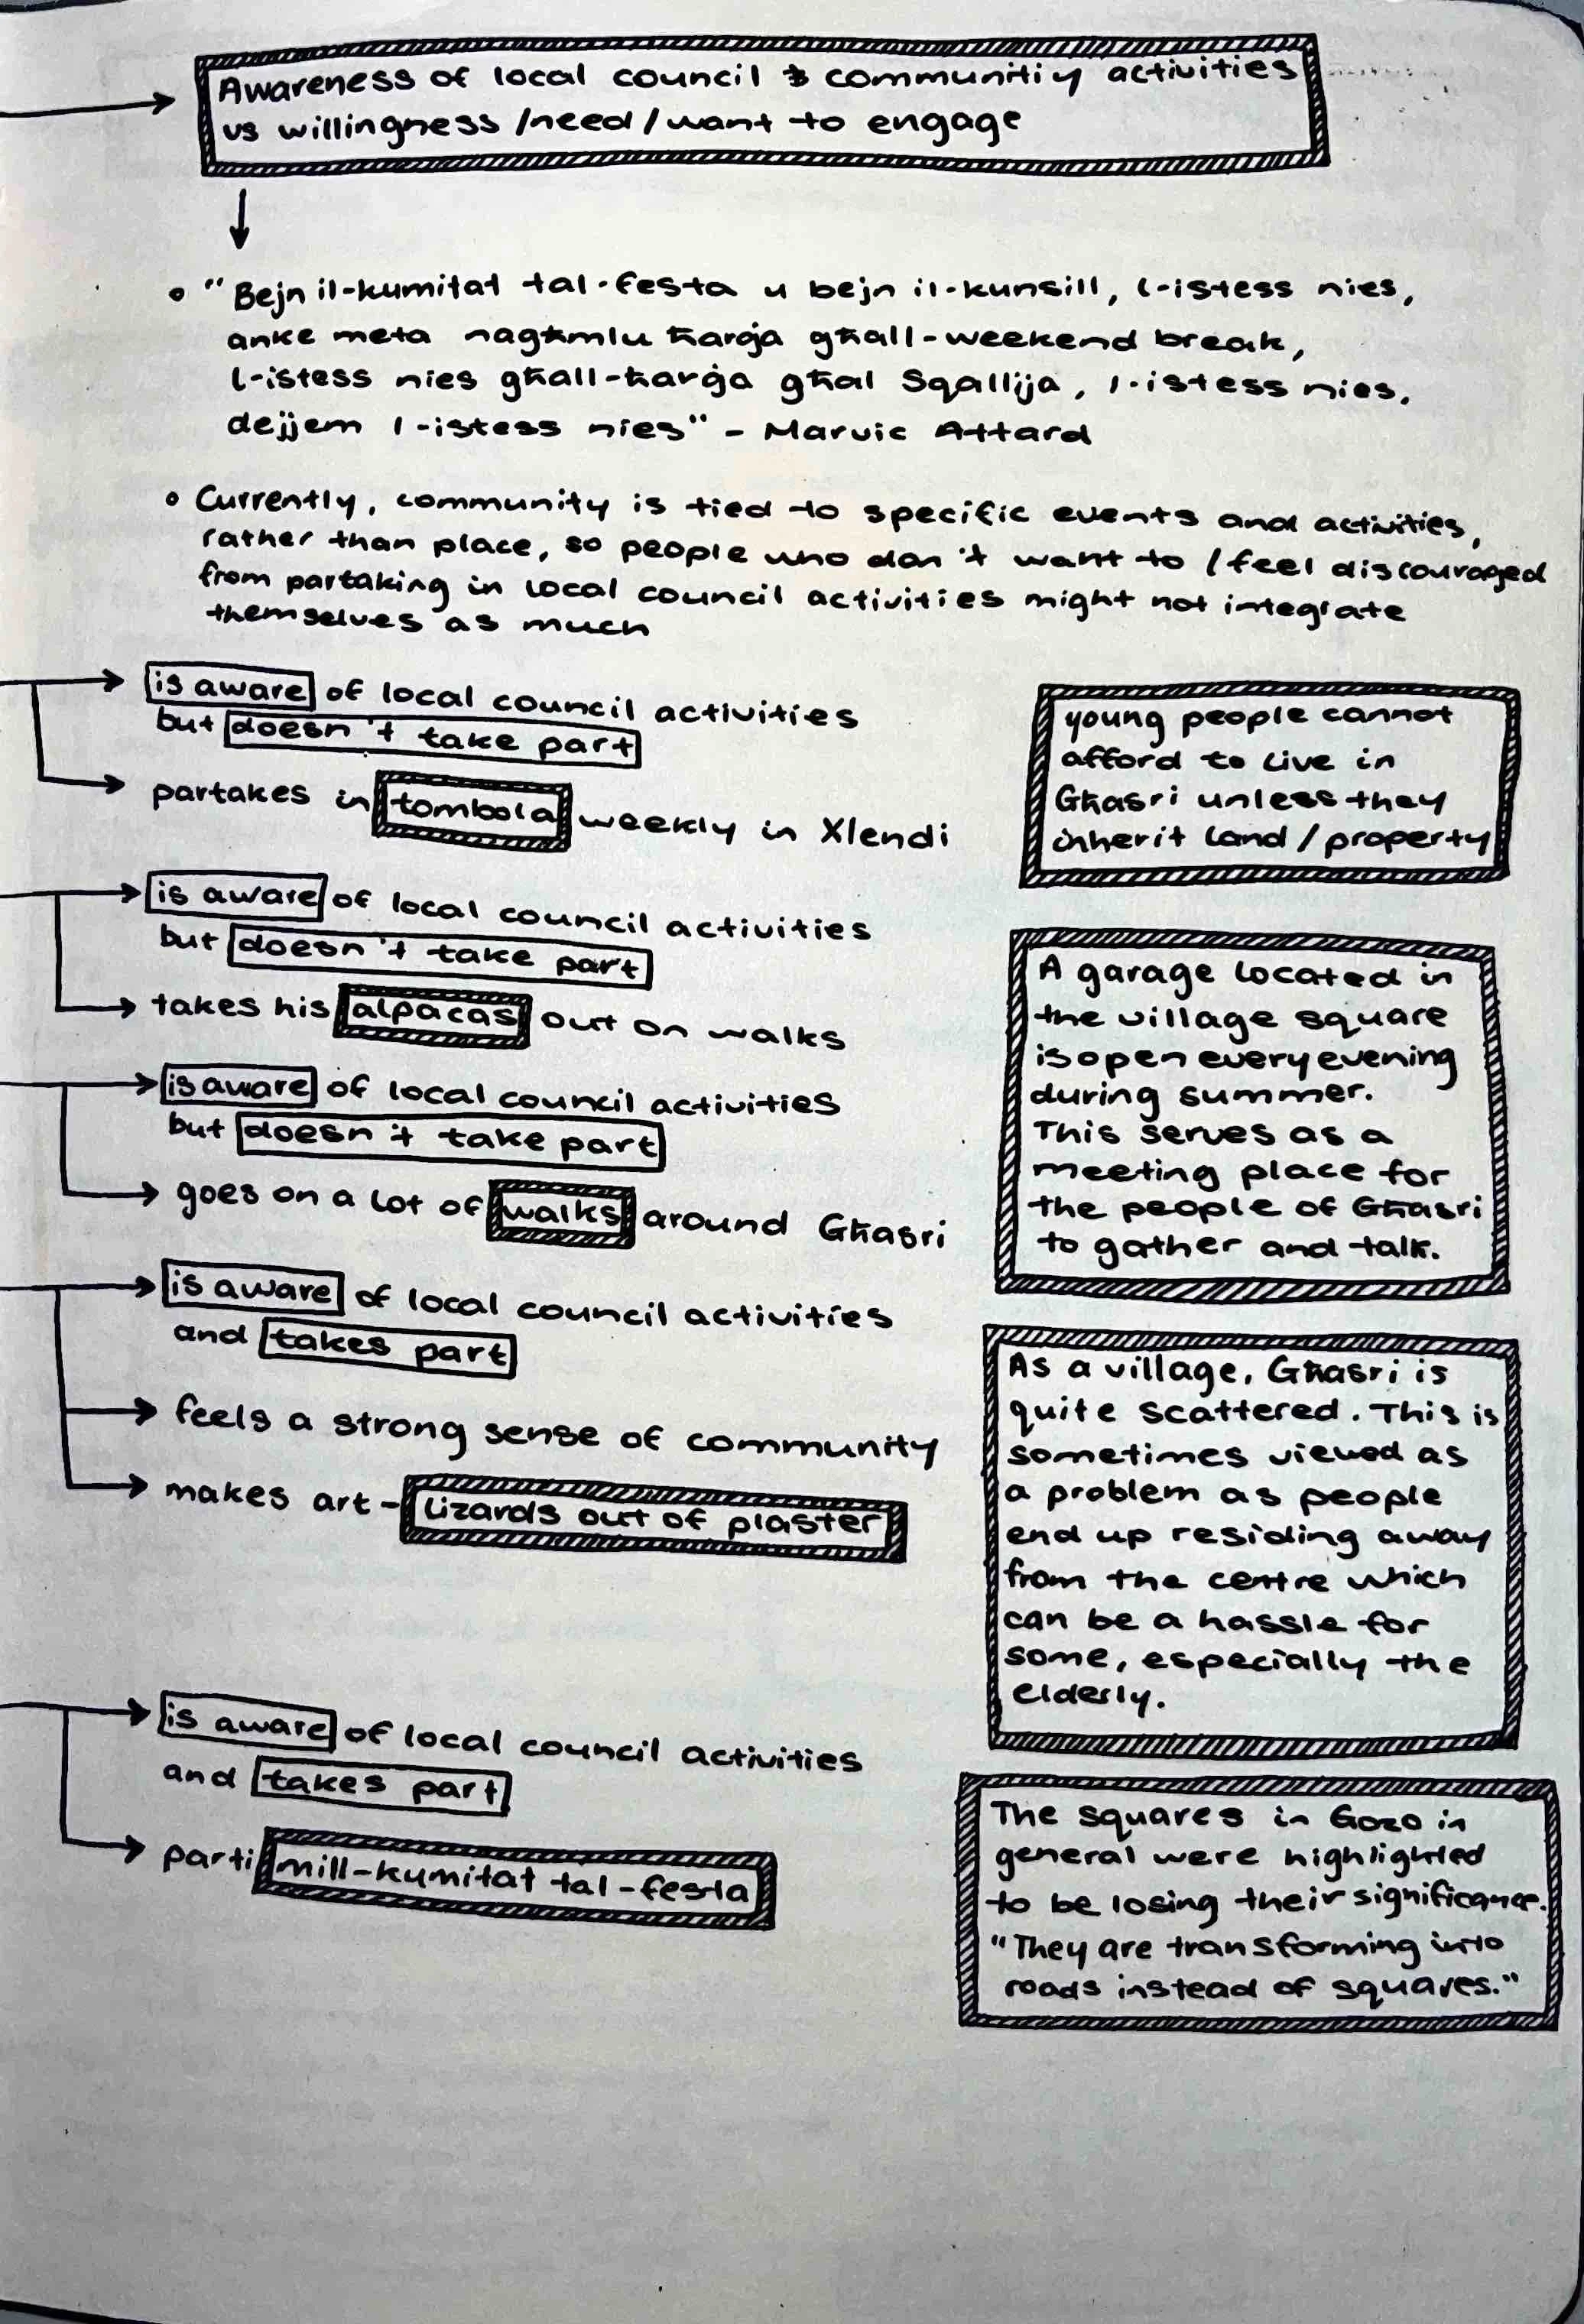 Awareness of local council & communitiy activities
vs willingness / need / want to engage
"Bejn il-kumitat tal-festa u bejn il-kunsill, l-istess nies,
anke meta nagħmlu ħarġa għall-weekend break,
l-istess nies għall-ħarġa għal Sqallija, l-istess nies,
dejjem l-istess nies" - Marvic Attard
Currently, community is tied to specific events and activities,
rather than place, so people who don't want to / feel discouraged
from partaking in local council activities might not integrate
themselves as much
is aware of local council activities
but doesn't take part
partakes in tombola weekly in Xlendi
is aware of local council activities
but doesn't take part
takes his alpacas out on walks
is aware of local council activities
but doesn't take part
goes on a lot of walks around Għasri
is aware of local council activities
and takes part
feels a strong sense of community
makes art - lizards out of plaster
is aware of local council activities
and takes part
parti mill-kumitat tal-festa
young people cannot
afford to live in
Għasri unless they
inherit land / property
A garage located in
the village square
is open every evening
during summer.
This serves as a
meeting place for
the people of Għasri
to gather and talk.
As a village, Għasri is
quite scattered. This is
sometimes viewed as
a problem as people
end up residing away
from the centre which
can be a hassle for
some, especially the
elderly.
The squares in Gozo in
general were highlighted
to be losing their significance.
"They are transforming into
roads instead of squares."